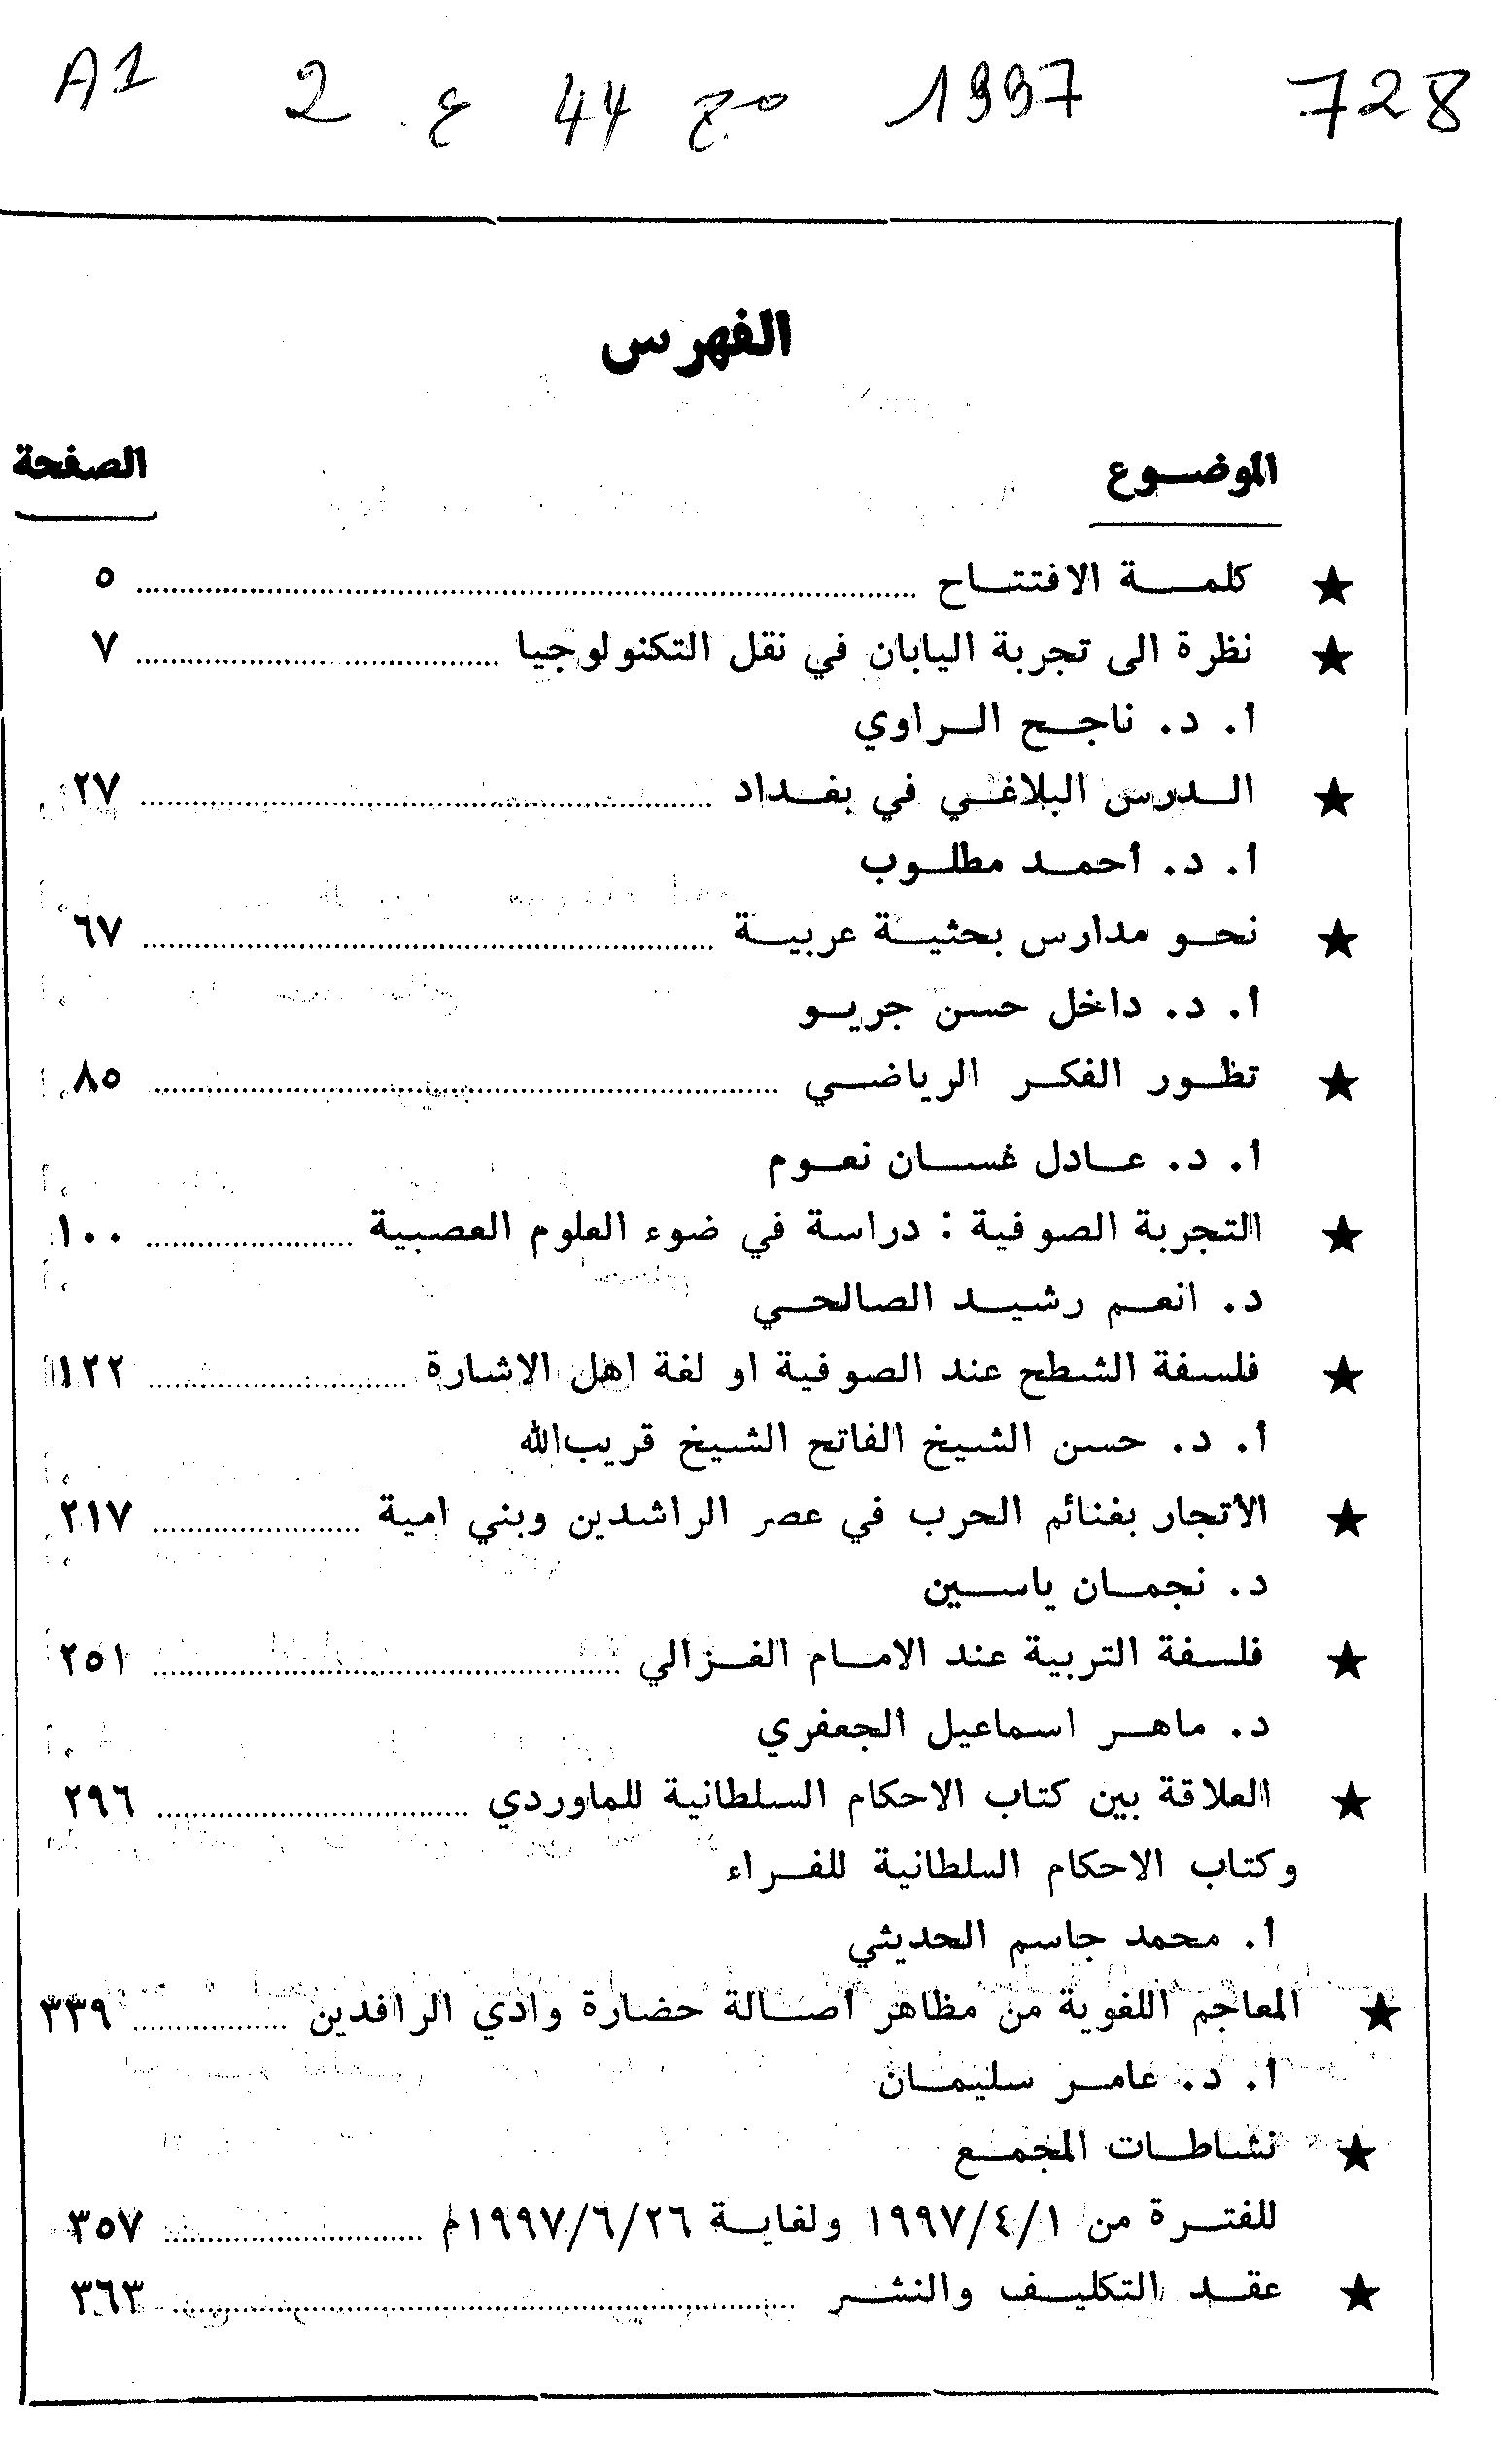 A1 2 ع. 44 مج 1997 728
الفهرس
الموضوع الصفحة
★ كلمة الافتتاح ٥
★ نظرة الى تجربة اليابان في نقل التكنولوجيا ٧
أ. د. ناجح الراوي
★ الدرس البلاغي في بغداد ٢٧
أ. د. أحمد مطلوب
★ نحو مدارس بحثية عربية ٦٧
أ. د. داخل حسن جريو
★ تظور الفكر الرياضي ٨٥
أ. د. عادل غسان نعوم
★ التجربة الصوفية : دراسة في ضوء العلوم العصبية ١٠٠
د. انعم رشيد الصالحي
★ فلسفة الشطح عند الصوفية او لغة اهل الإشارة ١٢٢
أ. د. حسن الشيخ الفاتح الشيخ قريب‌الله
★ الاتجار بغنائم الحرب في عصر الراشدين وبني امية ٢١٧
د. نجمان ياسين
★ فلسفة التربية عند الامام الغزالي ٢٥١
د. ماهر اسماعيل الجعفري
★ العلاقة بين كتاب الاحكام السلطانية للماوردي ٢٩٦
وكتاب الاحكام السلطانية للفراء
أ. محمد جاسم الحديثي
★ المعاجم اللغوية من مظاهر اصالة حضارة وادي الرافدين ٣٣٩
أ. د. عامر سليمان
★ نشاطات المجمع
للفترة من ١٩٩٧/٤/١ ولغاية ١٩٩٧/٦/٢٦م ٣٥٧
★ عقد التكليف والنشر ٣٦٣